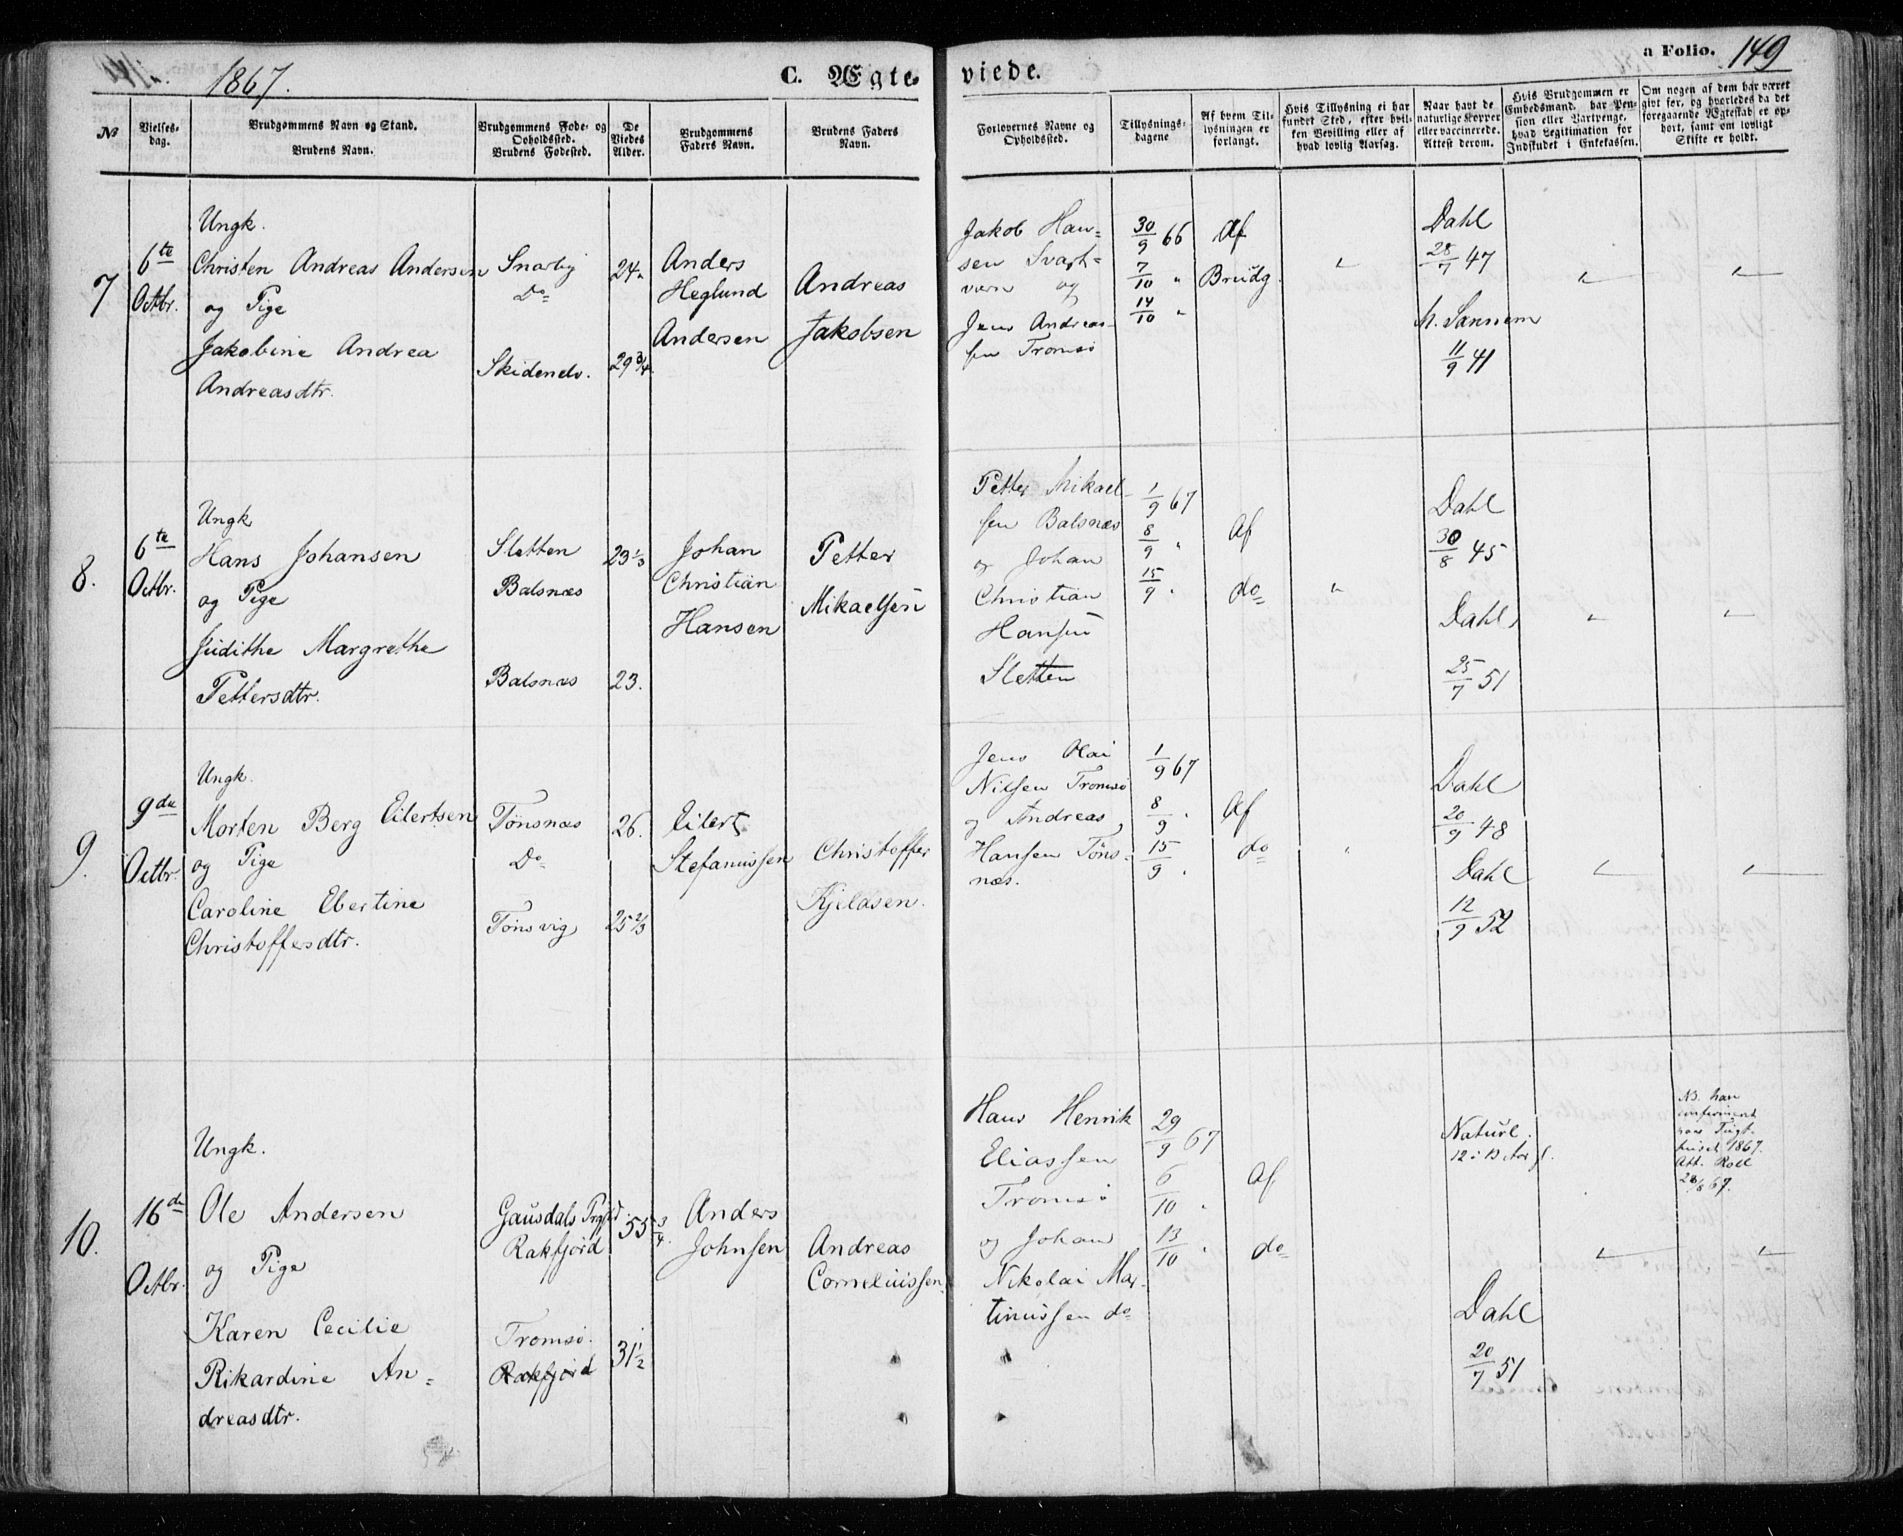 1867.
C. Ægteviede.
a Folio. 149
No
Vielsesdag.
Brudgommens Navn og Stand.
Brudens Navn.
Brudgommens Føde- og
Opholdssted.
Brudens Fødested.
De
Viedes
Alder.
Brudgommens
Faders Navn.
Brudens Faders
Navn.
Forlovernes Navne og
Opholdssted.
Tillysnings-
dagene
Af hvem Til-
lysningen er
forlangt.
Hvis Tillysning ei har
fundet Sted, efter hvil-
ken Bevilling eller af
hvad lovlig Aarsag.
Naar havt de
naturlige Kopper
eller vaccinerede.
Attest derom.
Hvis Brudgommen er
Embedsmand, har Pen-
sion eller Vartpenge,
hvad Legitimation for
Indskudet i Enkekassen.
Om nogen af dem har været
gift før, og hvorledes da det
foregaaende Ægteskab er op-
hørt, samt om lovligt
Skifte er holdt.
7
6te
Octbr.
Ungk.
Christen Andreas Andersen
og Pige
Jakobine Andrea
Andreasdtr.
Snarby
Do
Skidenelv.
24
29 3/4.
Anders
Heglund
Andersen
Andreas
Jakobsen
Jakob Han-
sen Svart-
væn og
Jens Andrea-
sen Tromsø
30/9 66
7/10 "
14/10 "
Af
Brudg.
"
Dahl
28/7 47
M. Sannem
11/9 41
"
"
8.
6te
Octbr.
Ungk
Hans Johansen
og Pige
Judithe Margrethe
Pettersdtr.
Sletten
Balsnæs
Balsnæs
23 1/3
23.
Johan
Christian
Hansen
Petter
Mikaelsen
Petter Mikael-
sen Balsnæs
og Johan
Christian
Hansen
Sletten
1/9 67
8/9 "
15/9 "
Af
do
"
Dahl
30/8 45
Dahl
25/7 51
"
"
9.
9de
Octbr.
Ungk.
Morten Berg Eilertsen
og Pige
Caroline Ebertine
Christoffersdtr.
Tönsnæs
Do
Tönsvig
26.
25 2/3
Eilert
Stefanussen
Christoffer
Kjeldsen.
Jens Olai
Nilsen Tromsø
og Andreas
Hansen Töns-
næs.
1/9 67
8/9 "
15/9 "
Af
do
"
Dahl
20/9 48
Dahl
12/9 52
"
"
10.
16de
Octbr.
Ungk.
Ole Andersen
og Pige
Karen Cecilie
Rikardine An-
dreasdtr.
Gausdals Prgjld
Rakfjord
Tromsø.
Rakfjord
55 3/4.
31 1/2
Anders
Johnsen
Andreas
Corneliussen
Hans Henrik
Eliassen
Tromsø
og Johan
Nikolai Mar-
tinussen do
29/9 67
6/10 "
13/10 "
Af
do
Naturl.
Dahl
20/7 51
"
NB. han
confirmeret
1867.
Att. Roll
67.
"